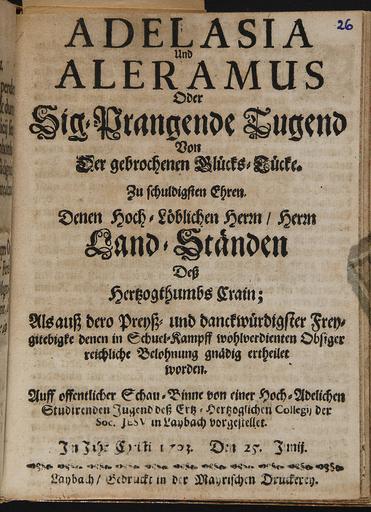 26
ADELASIA
Und
ALERAMUS
Oder
Sig-Prangende Tugend
Von
Der gebrochenen Glücks-Tücke.
Zu schuldigsten Ehren.
Denen Hoch-Löblichen Herrn / Herrn
Land-Ständen
Deß
Hertzogthumbs Crain;
Als auß dero Preyß- und danckwürdigster Frey-
gitebigke denen in Schuel-Kampff wohlverdienten Obsiger
reichliche Belohnung gnädig ertheilet
worden.
Auff offentlicher Schau-Binne von einer Hoch-Adelichen
Studirenden Jugend deß Ertz-Hertzoglichen Collegij der
Soc. JESU in Laybach vorgestellet.
In Jahr Christi 1703. Den 25. Junij.
Laybach / Gedruckt in der Mayrischen Druckerey.